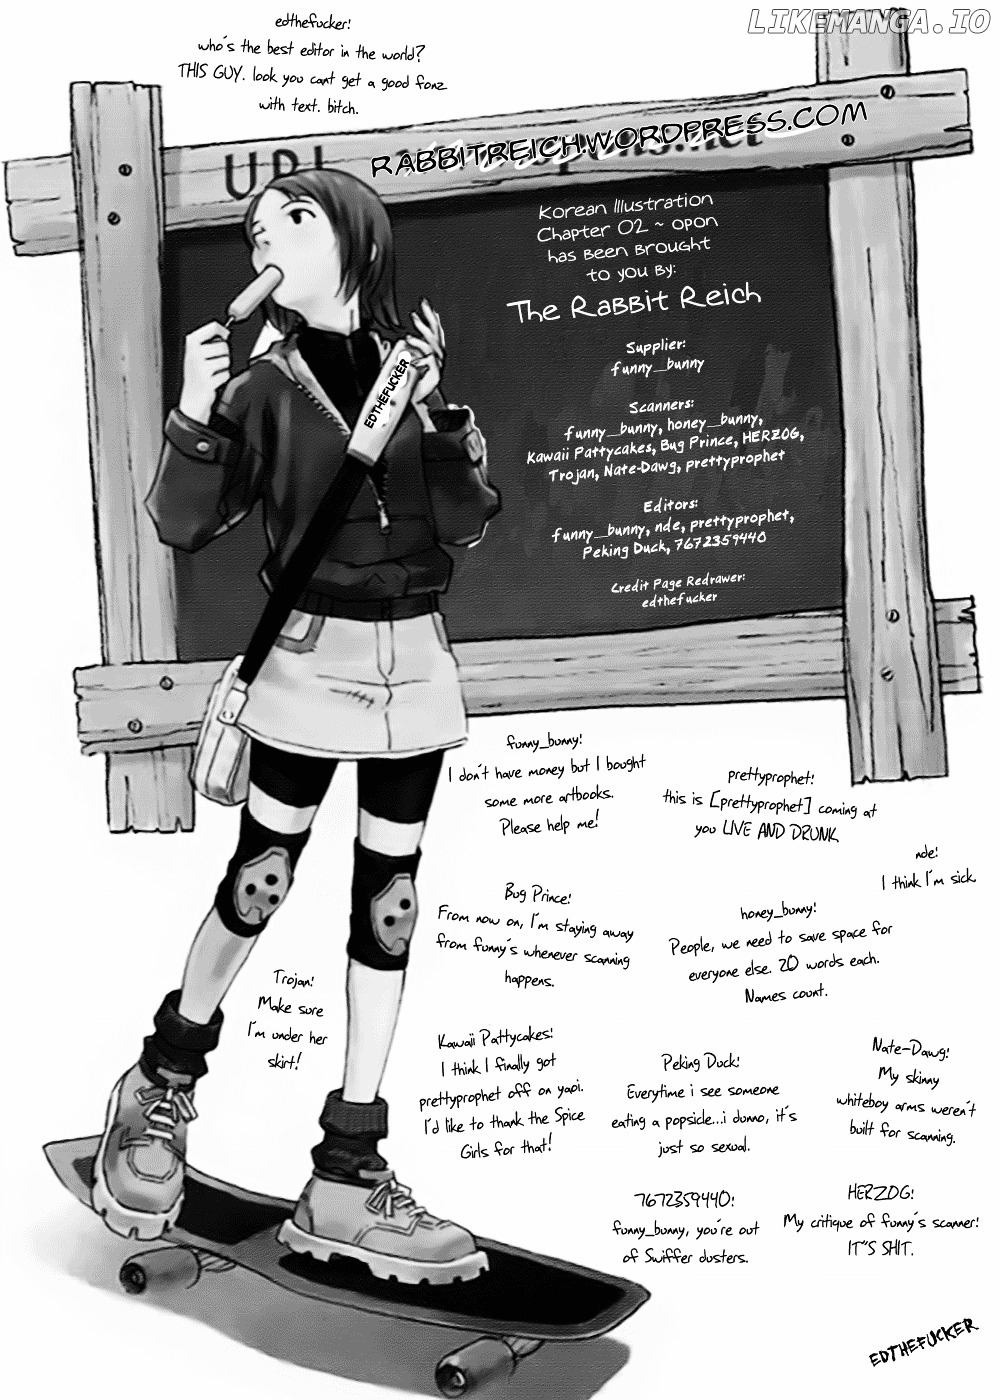 LIKEMANGA.IO
edthefucker!
who's the best editor in the world?
THIS GUY. look you cant get a good fonz
with text. bitch.
URL
RABBITREICH.WORDPRESS.COM
Korean Illustration
Chapter 02 ~ opon
has been brought
to you by:
The Rabbit Reich
Supplier:
funny_bunny
Scanners:
funny_bunny, honey_bunny,
Kawaii Pattycakes, Bug Prince, HERZOG,
Trojan, Nate-Dawg, prettyprophet
Editors:
funny_bunny, nde, prettyprophet,
Peking Duck, 7672359440
Credit Page Redrawer:
edthefucker
EDTHEFUCKER
funny_bunny!
I don't have money but I bought
some more artbooks.
Please help me!
prettyprophet!
this is [prettyprophet] coming at
you LIVE AND DRUNK
nde!
I think I'm sick.
Bug Prince!
From now on, I'm staying away
from funny's whenever scanning
happens.
honey_bunny!
People, we need to save space for
everyone else. 20 words each.
Names count.
Trojan!
Make sure
I'm under her
skirt!
Kawaii Pattycakes!
I think I finally got
prettyprophet off on yaoi.
I'd like to thank the Spice
Girls for that!
Peking Duck!
Everytime i see someone
eating a popsicle...i dunno, it's
just so sexual.
Nate-Dawg!
My skinny
whiteboy arms weren't
built for scanning.
7672359440!
funny_bunny, you're out
of Swiffer dusters.
HERZOG!
My critique of funny's scanner!
IT"S SHIT.
EDTHEFUCKER